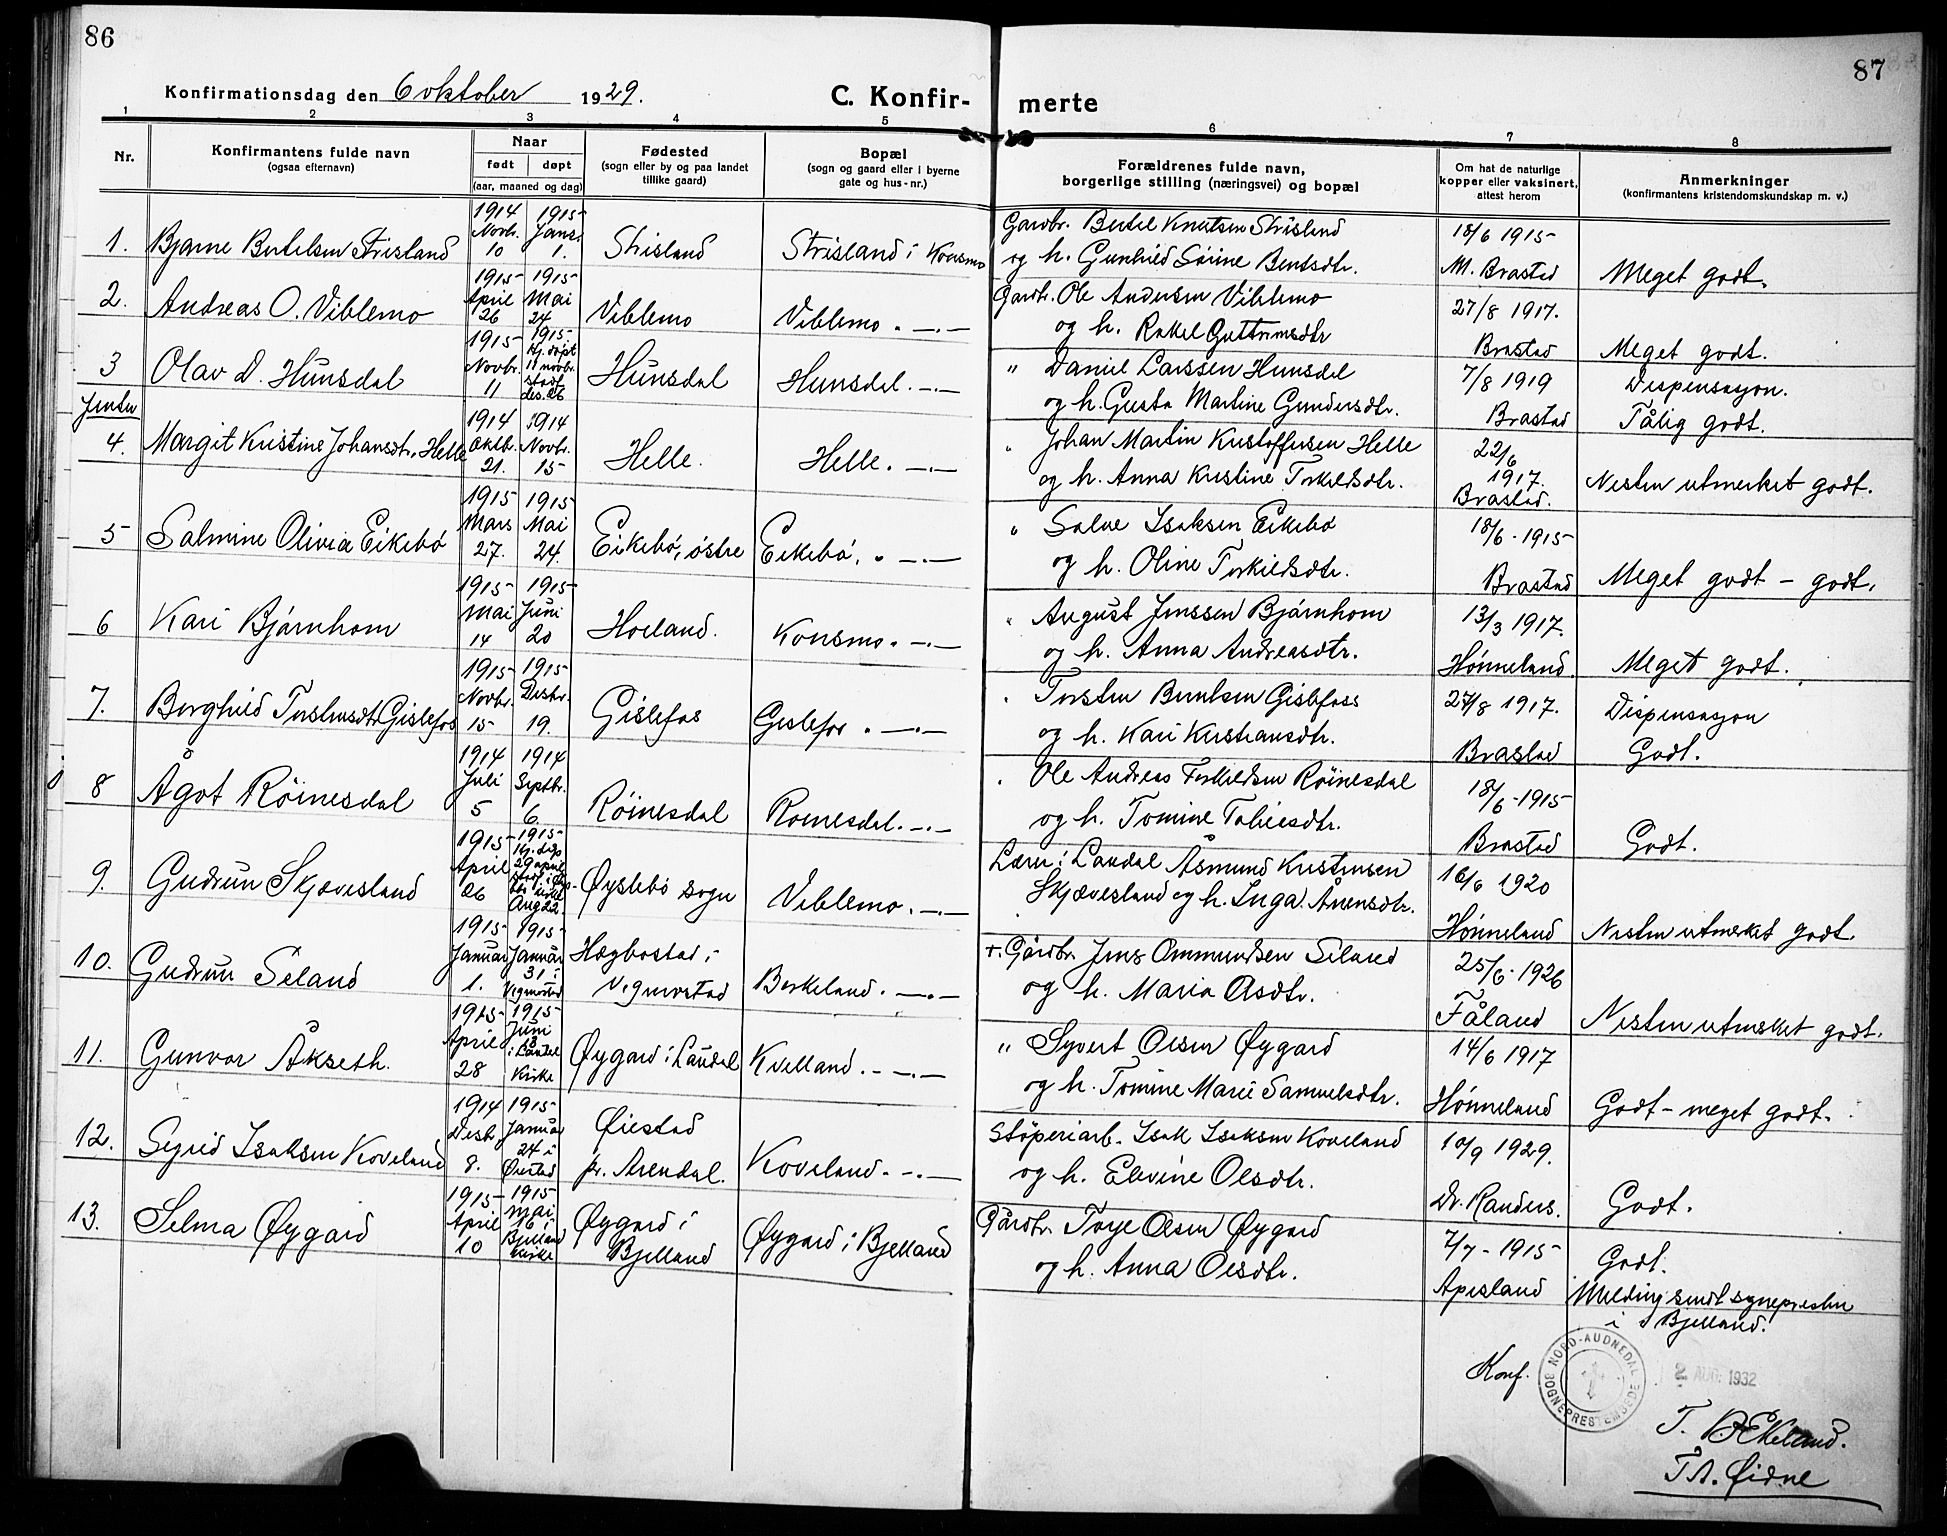 86
87
Konfirmationsdag den 6 oktober 1929.
C. Konfir-
merte
1 2 3 4 5 6 7 8
Nr.
Konfirmantens fulde navn
(ogsaa efternavn)
Naar
født døpt
(aar, maaned og dag)
Fødested
(sogn eller by og paa landet
tillike gaard)
Bopæl
(sogn og gaard eller i byerne
gate og hus-nr.)
Forældrenes fulde navn,
borgerlige stilling (næringsvei) og bopæl
Om hat de naturlige
kopper eller vaksinert,
attest herom
Anmerkninger
(konfirmantens kristendomskundskap m. v.)
1. Bjarne Bertelsen Strisland 1914 Novbr. 10 1915 Jans. 1. Strisland Strisland i Konsmo
Gardbr. Bertel Knutsen Strisland
og h. Gunhild Sørine Bentsdtr.
18/6 1915
M. Brastad Meget godt.
2. Andreas O. Viblemo 1915 April 26 1915 Mai 24 Viblemo Viblemo . —.—
Gardbr. Ole Andersen Viblemo
og h. Rakel Guttormsdtr
27/8 1917.
Brastad Meget godt.
3 Olav D. Hunsdal 1915 Novbr. 11 1915 Hj. døpt 11 novbr. stadf. des. 26 Hunsdal Hunsdal. —.—
" Daniel Larssen Hunsdal
og h. Gusta Martine Gundersdtr.
7/8 1919 Dispensasjon.
Brastad Tålig godt.
Jenter
4. Margit Kristine Johansdtr. Helle 1914 Oktbr. 21. 1914 Novbr. 15 Helle. Helle. —.—
" Johan Martin Kristoffersen Helle
og h. Anna Kristine Torkildsdtr.
22/6
1917.
Brastad. Nesten utmerket godt.
5 Salmine Olivia Eikebø 1915 Mars 27. 1915 Mai 24. Eikebø, østre Eikebø, . —.—
" Salve Isaksen Eikebø
og h. Oline Torkildsdtr.
18/6 - 1915
Brastad Meget godt - godt.
6 Kari Bjårnhom 1915 Mai 14 1915 Juni 20 Hoeland. Konsmo. —.—
" August Jenssen Bjårnhom
og h. Anna Andreasdtr.
13/3 1917.
Hønneland. Meget godt.
7. Borghild Torstensdtr. Gislefos 1915 Novbr. 15 1915 Desbr. 19. Gislefos Gislefos . —.—
" Torsten Berntsen Gislefoss
og h. Kari Kristiansdtr.
27/8 1917. Dispensasjon
Brastad Godt.
8 Ågot Røinesdal 1914 Juli 5 1914 Septbr. 6. Røinesdal Roinesdal. —.—
" Ole Andreas Torkildsen Røinesdal
og h. Tomine Tobiesdtr.
18/6 - 1915
Brastad Godt.
9. Gudrun Skjævesland 1915 April 26 1915 Hj. døp 29 april kirke Aug 22. Øyslebø sogn Viblemo. —.—
Lærer i Laudal Åsmund Kristensen
Skjævesland og h. Inga Ånensdtr.
16/6 1920
Hønneland Nesten utmerket godt
10. Gudrun Seland 1915 Januar 1. 1915 Januar 31 i Vegusdal Hægbostad i Vigmostad Birkeland. —.—
+. Gårdbr. Jens Ommundsen Seland
og h. Maria Osdtr.
25/6 - 1926
Fåland Nesten utmerket godt.
11. Gunvor Åkseth. 1915 April 28 1915 Juni 13 i Laudal Kirke Øygard i Laudal Kvelland. —.—
" Syvert Olsen Øygard
og h. Tomine Marie Samuelsdtr.
14/6 1917
Hønneland Godt - meget godt.
12. Sigrid Isaksen Koveland 1914 Desb. 8. 1915 Januar 24 i Øiestad Øiestad pr. Arendal. Koveland. —.—
Støperiarb. Isak Isaksen Koveland
og h. Elevine Olsdtr.
10/9 1929.
Dr. Randers. Godt.
13. Selma Øygard 1915 April 10 1915 Mai 16 i Bjelland kirke Øygard i Bjelland Øygard i Bjelland
Gårdbr. Torje Olsen Øygard
og h. Anna Olsdtr.
7/7 - 1915 Godt.
Apesland Melding sendt sogneprestn
i Bjelland.
Konf.
NORD-AUDNEDAL SOGNEPRESTEMBEDE
2 AUG 1932
T. B. Ekeland.
T. A. Øidne